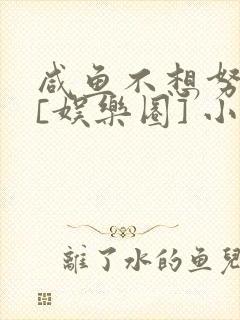 咸鱼不想努
[娱樂圈]小
離了水的鱼兒